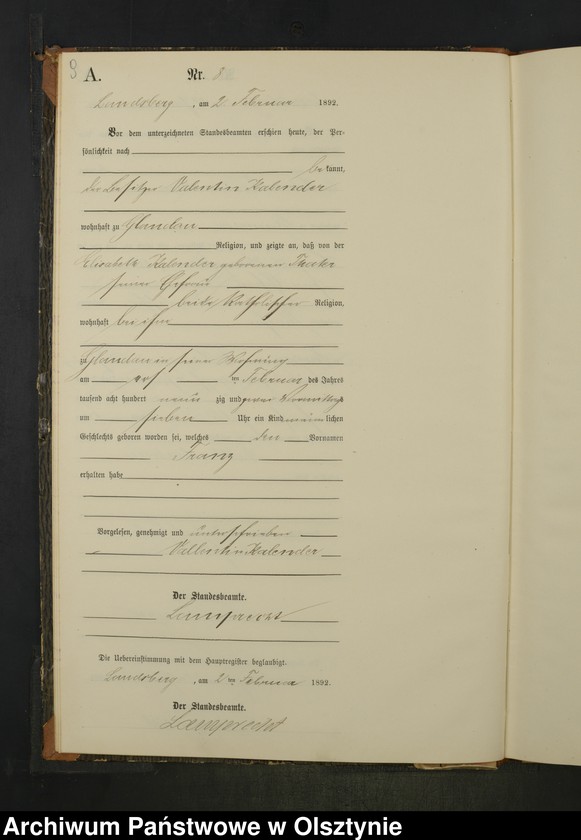 8
A. Nr. 8
Landsberg, am 2. Februar 1892.
Vor dem unterzeichneten Standesbeamten erschien heute, der Per-
sönlichkeit nach
bekannt,
der Besitzer Valentin Kalender
wohnhaft zu Glandau
Religion, und zeigte an, daß von der
Elisabeth Kalender geborenen
seiner Ehefrau
beide katholischer Religion,
wohnhaft bei ihm
zu Glandau in seiner Wohnung
am ten Februar des Jahres
tausend acht hundert neun zig und zwei Vormittags
um sieben Uhr ein Kind männlichen
Geschlechts geboren worden sei, welches den Vornamen
Franz
erhalten habe
Vorgelesen, genehmigt und unterschrieben
Vallentin Kalender
Der Standesbeamte.
Lamprecht
Die Uebereinstimmung mit dem Hauptregister beglaubigt.
Landsberg, am 2 ten Februar 1892.
Der Standesbeamte.
Lamprecht
Archiwum Państwowe w Olsztynie